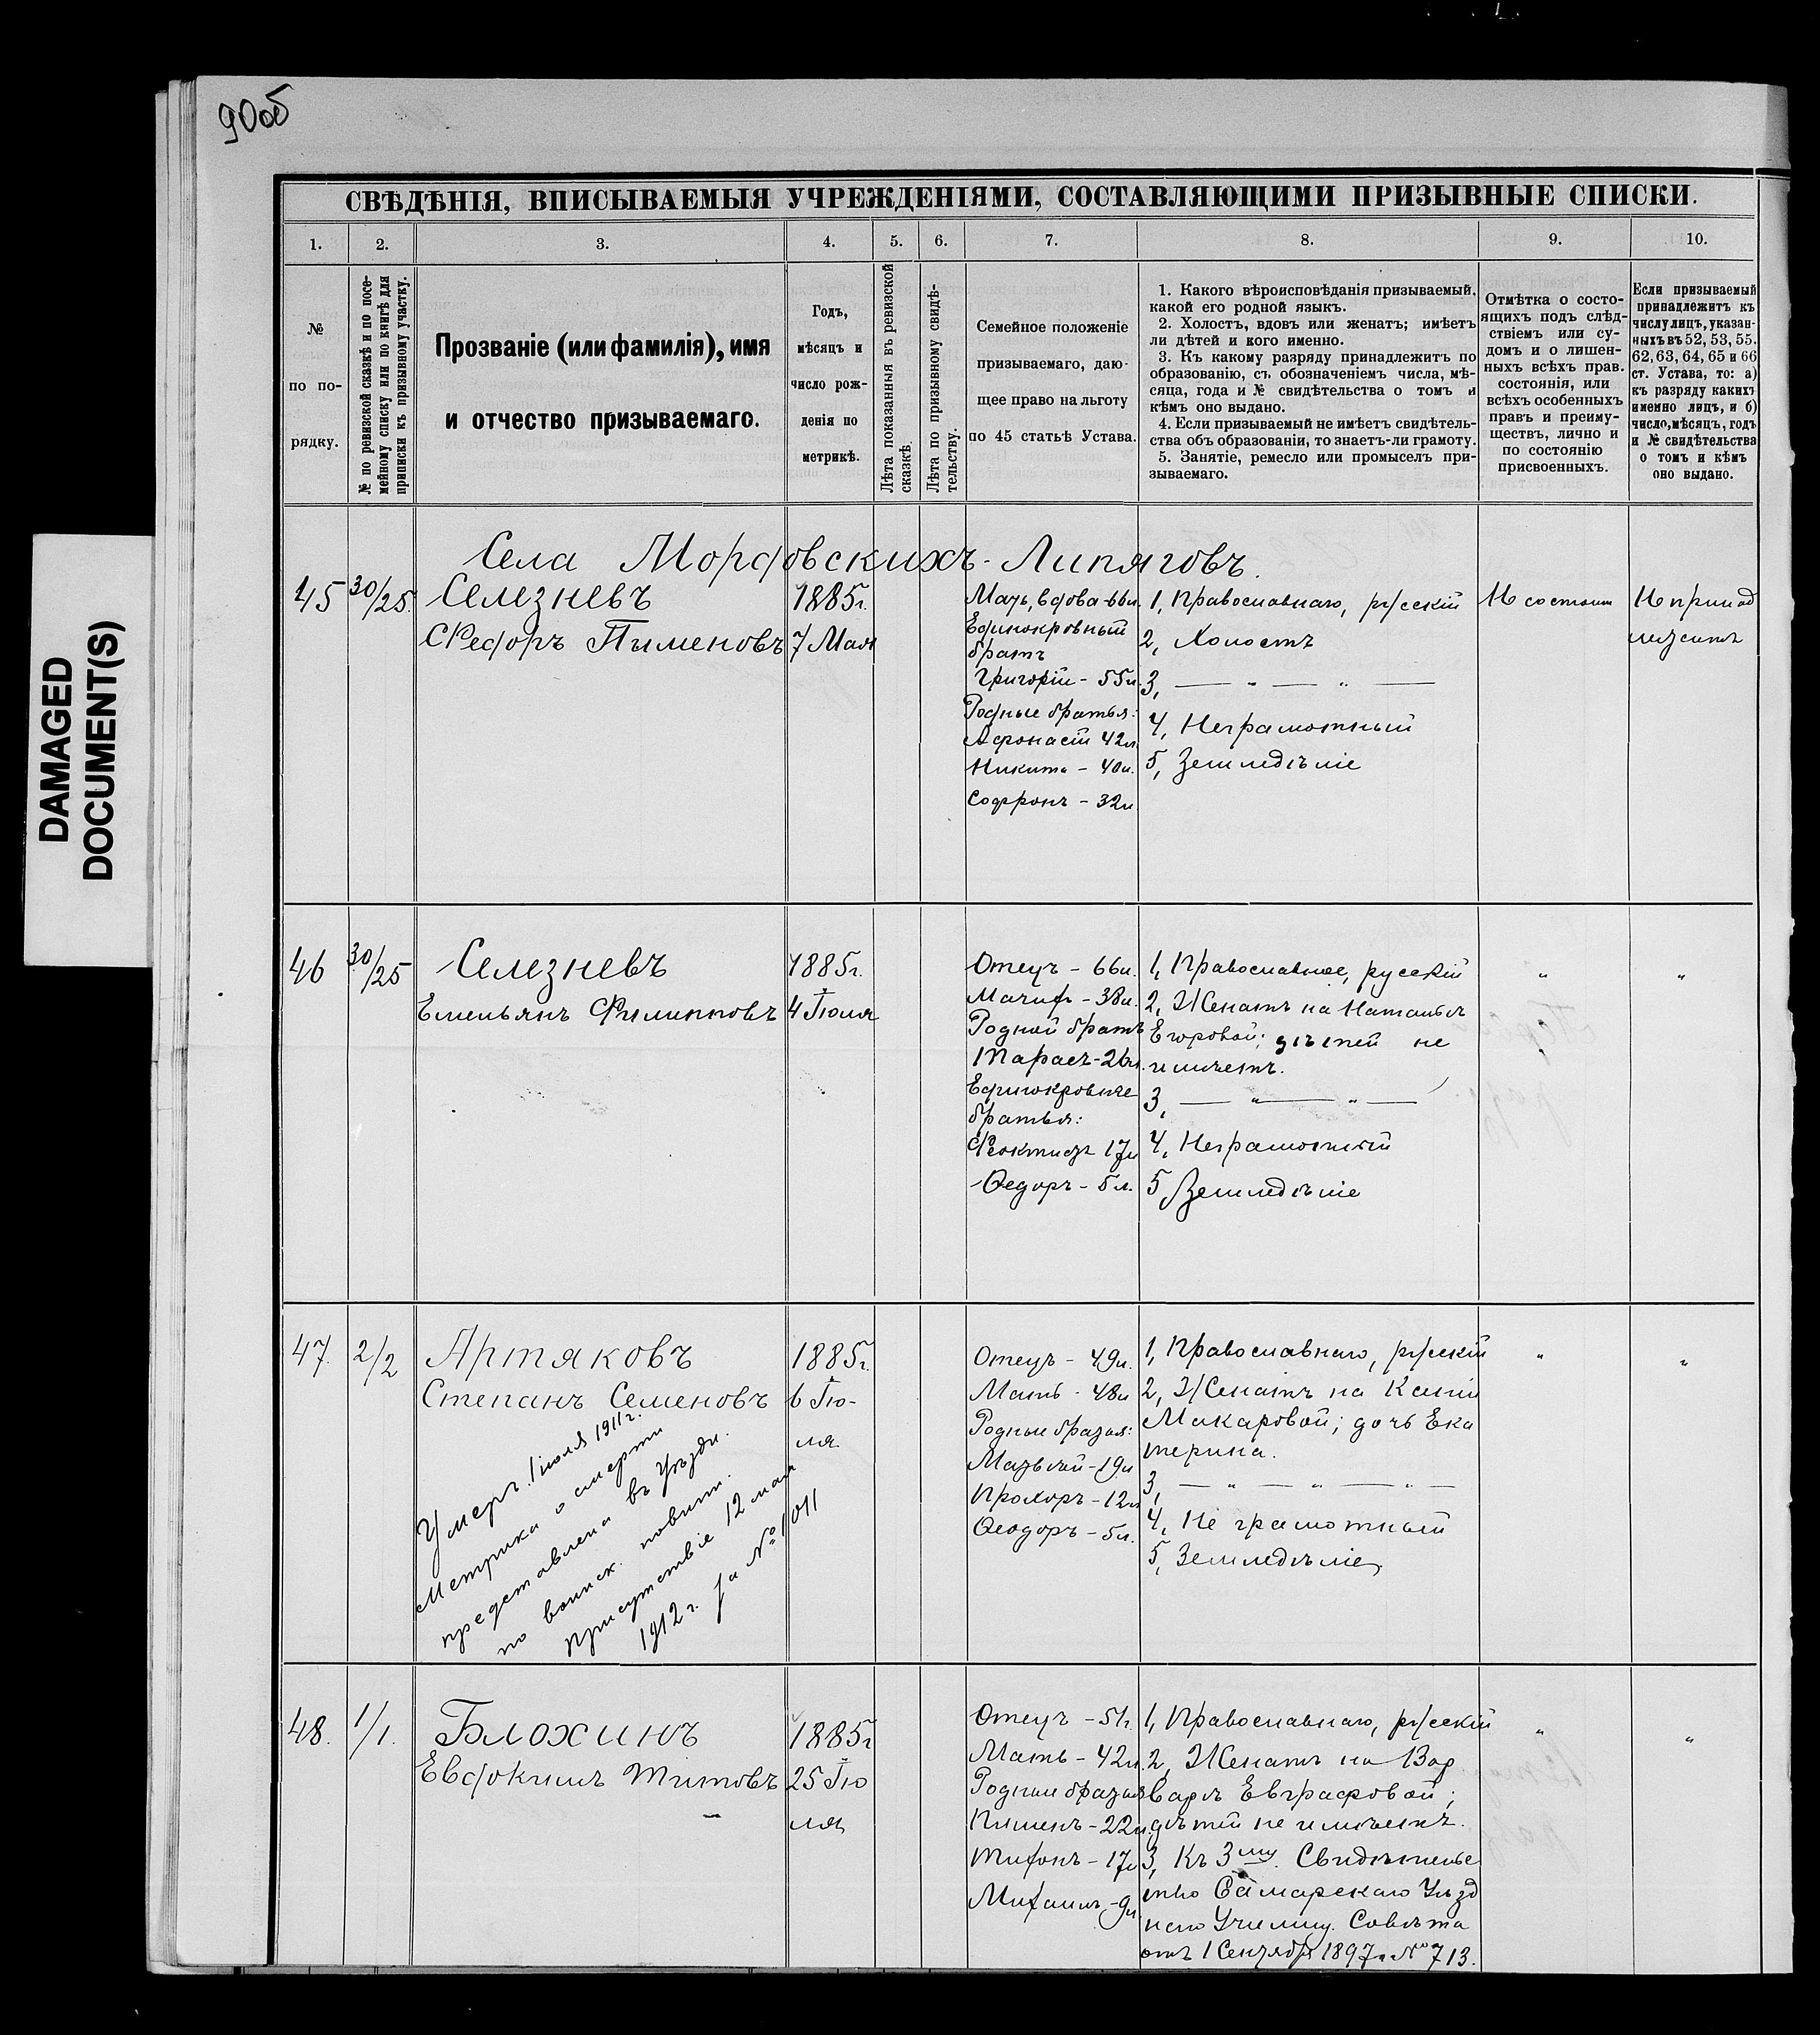 90об
DAMAGED
DOCUMENT(S)
СВѢДѢНІЯ, ВПИСЫВАЕМЫЯ УЧРЕЖДЕНІЯМИ, СОСТАВЛЯЮЩИМИ ПРИЗЫВНЫЕ СПИСКИ.
1. 2. 3. 4. 5. 6. 7. 8. 9. 10.
№
по по-
рядку.
№ по ревизской сказкѣ и по посе-
мейному списку или по книгѣ для
приписки къ призывному участку.
Прозваніе (или фамилія), имя
и отчество призываемаго.
Годъ,
мѣсяцъ и
число рож-
денія по
метрикѣ.
Лѣта показанныя въ ревизской
сказкѣ.
Лѣта по призывному свидѣ-
тельству.
Семейное положеніе
призываемаго, даю-
щее право на льготу
по 45 статьѣ Устава.
1. Какого вѣроисповѣданія призываемый,
какой его родной языкъ.
2. Холостъ, вдовъ или женатъ; имѣетъ
ли дѣтей и кого именно.
3. Къ какому разряду принадлежитъ по
образованію, съ обозначеніемъ числа, мѣ-
сяца, года и № свидѣтельства о томъ и
кѣмъ оно выдано.
4. Если призываемый не имѣетъ свидѣтель-
ства объ образованіи, то знаетъ-ли грамоту.
5. Занятіе, ремесло или промыселъ при-
зываемаго.
Отмѣтка о состо-
ящихъ подъ слѣд-
ствіемъ или су-
домъ и о лишен-
ныхъ всѣхъ прав.
состоянія, или
всѣхъ особенныхъ
правъ и преиму-
ществъ, лично и
по состоянію
присвоенныхъ.
Если призываемый
принадлежитъ къ
числу лицъ, указан-
ныхъ въ 52, 53, 55.
62, 63, 64, 65 и 66
ст. Устава, то: а)
къ разряду какихъ
именно лицъ, и б)
число, мѣсяцъ, годъ
и № свидѣтельства
о томъ и кѣмъ
оно выдано.
Села Мордовскихъ-Липяговъ.
45 30/25.
Селезневъ
Ѳедоръ Пименовъ
1885г.
7 Мая
Мать, вдова-66л.
Единокровный
братъ
Григорій - 55л.
Родные братья:
Афонасій 42л.
Никита - 40л.
Софронъ - 32л.
1, Православнаго, русскій
2, Холостъ
3, — " — " —
4, Неграмотный
5, Земледѣліе
Не состоит
Не принад
лежитъ
46 30/25
Селезневъ
Емельянъ Филипповъ
1885г.
4 Іюля
Отецъ - 66л.
Мачиха - 38л.
Родной братъ
Тарасъ-26л.
Единокровные
братья:
Феоктистъ 17л
Ѳедоръ - 5л.
1, Православное, русскій
2, Женатъ на Натальѣ
Егоровой; дѣтей не
имѣетъ.
3, — " — " —
4, Неграмотный
5, Земледѣліе
" "
47. 2/2
Артяковъ
Степанъ Семеновъ
1885г.
6 Ію-
ля
Умеръ 1 іюля 1911г.
Метрика о смерти
представлена въ Уѣздн.
по воинск. повинн.
присутствіе 12 мая
1912 г. за № 1011
Отецъ - 49л.
Мать - 48л
Родные братья:
Матвѣй-19л
Прохоръ-12л
Ѳеодоръ-5л.
1, Православнаго, русскій
2, Женатъ на
Макаровой; дочь Ека
терина.
3, — " — " — " —
4, Не грамотный
5, Земледѣліе
" "
48. 1/1.
Блохинъ
Евдокимъ Титовъ
1885г
25 Ію
ля
Отецъ - 51г.
Мать - 42л.
Родные братья
Пименъ - 22л.
Тифонъ - 17л
Михаилъ - 9л
1, Православнаго, русскій
2, Женатъ на Вар
варѣ Евграфовой;
дѣтей не имѣетъ.
3, Къ 3му. Свидѣтель
ство Самарскаго Уѣзд
наго Училищ. Совѣта
отъ 1 Сентября 1897г. № 713.
" "